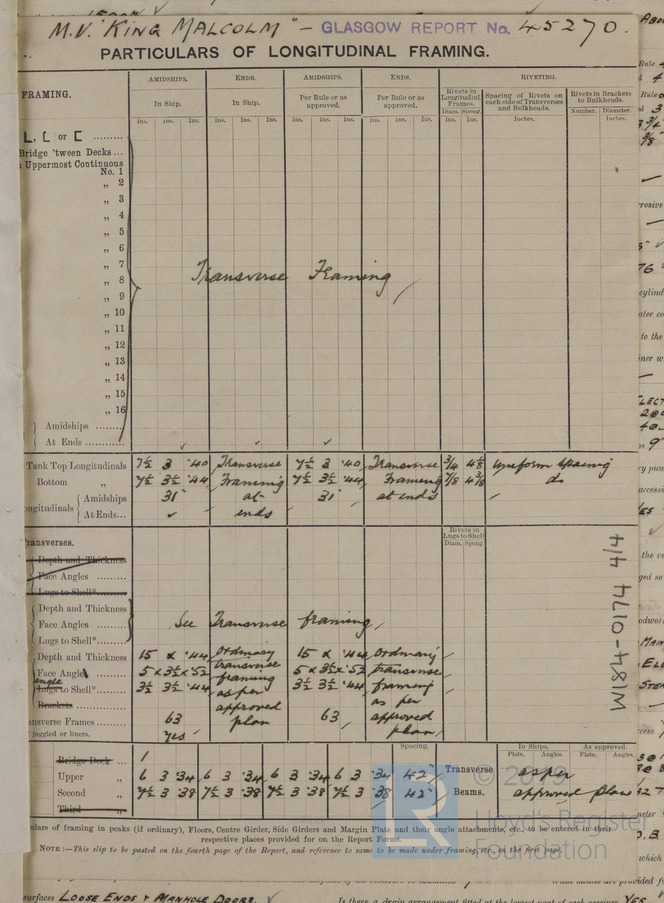 M.V. "KING MALCOLM" – GLASGOW REPORT No. 45270.
PARTICULARS OF LONGITUDINAL FRAMING.
FRAMING. AMIDSHIPS. ENDS. AMIDSHIPS. ENDS. RIVETING.
In Ship. In Ship. Per Rule or as approved. Per Rule or as approved. Rivets in Longitudinal Frames. Spacing of Rivets on each side of Transverses and Bulkheads. Rivets in Brackets to Bulkheads.
Diam. Speng. Number. Diameter.
Ins. Ins. Ins. Ins. Ins. Ins. Ins. Ins. Ins. Ins. Ins. Ins. Inches. Inches.
L, [ or [
Bridge 'tween Decks ...
Uppermost Continuous
No. 1
„ 2
„ 3
„ 4
„ 5
„ 6
„ 7
Transverse Framing
„ 8
„ 9
„ 10
„ 11
„ 12
„ 13
„ 14
„ 15
„ 16
Amidships
At Ends
Tank Top Longitudinals 7½ 3 .40 Transverse 7½ 3 .40 Transverse ¾ 4⅛ Uniform spacing
Bottom „ 7½ 3½ .44 Framing 7½ 3½ .44 Framing ⅞ 4⅞ do
ongitudinals Amidships 31" at 31" at ends
At Ends... ends
ransverses. Rivets in Lugs to Shell
Diam. Speng
Depth and Thickness
Face Angles
Lugs to Shell*
Depth and Thickness
Face Angles See Transverse framing
Lugs to Shell*
Depth and Thickness 15 x .44 Ordinary 15 x .44 Ordinary
Face Angle 5 x 3½ x .52 transverse 5 x 3½ x .52 transverse
angle Lugs to Shell* 3½ 3½ .44 framing 3½ 3½ .44 framing
Brackets as per approved as per
nsverse Frames 63 plan 63 approved
joggled or liners. yes plan
W184-0174 4/4
Bridge Deck Spacing. In Ships. As approved.
Plate. Angles. Plate. Angles.
Upper „ 6 3 .34 6 3 .34 6 3 .34 6 3 .34 42" Transverse as per
Second „ 7½ 3 .38 7½ 3 .38 7½ 3 .38 7½ 3 .38 42" Beams. approved plan
Third „
ulars of framing in peaks (if ordinary), Floors, Centre Girder, Side Girders and Margin Plate and their angle attachments, etc., to be entered in their
respective places provided for on the Report Forms.
NOTE:—This slip to be pasted on the fourth page of the Report, and reference to same to be made under framing, etc., on the first page.
Lloyd's Register
Foundation
surfaces LOOSE ENDS & MANHOLE DOORS.
YES